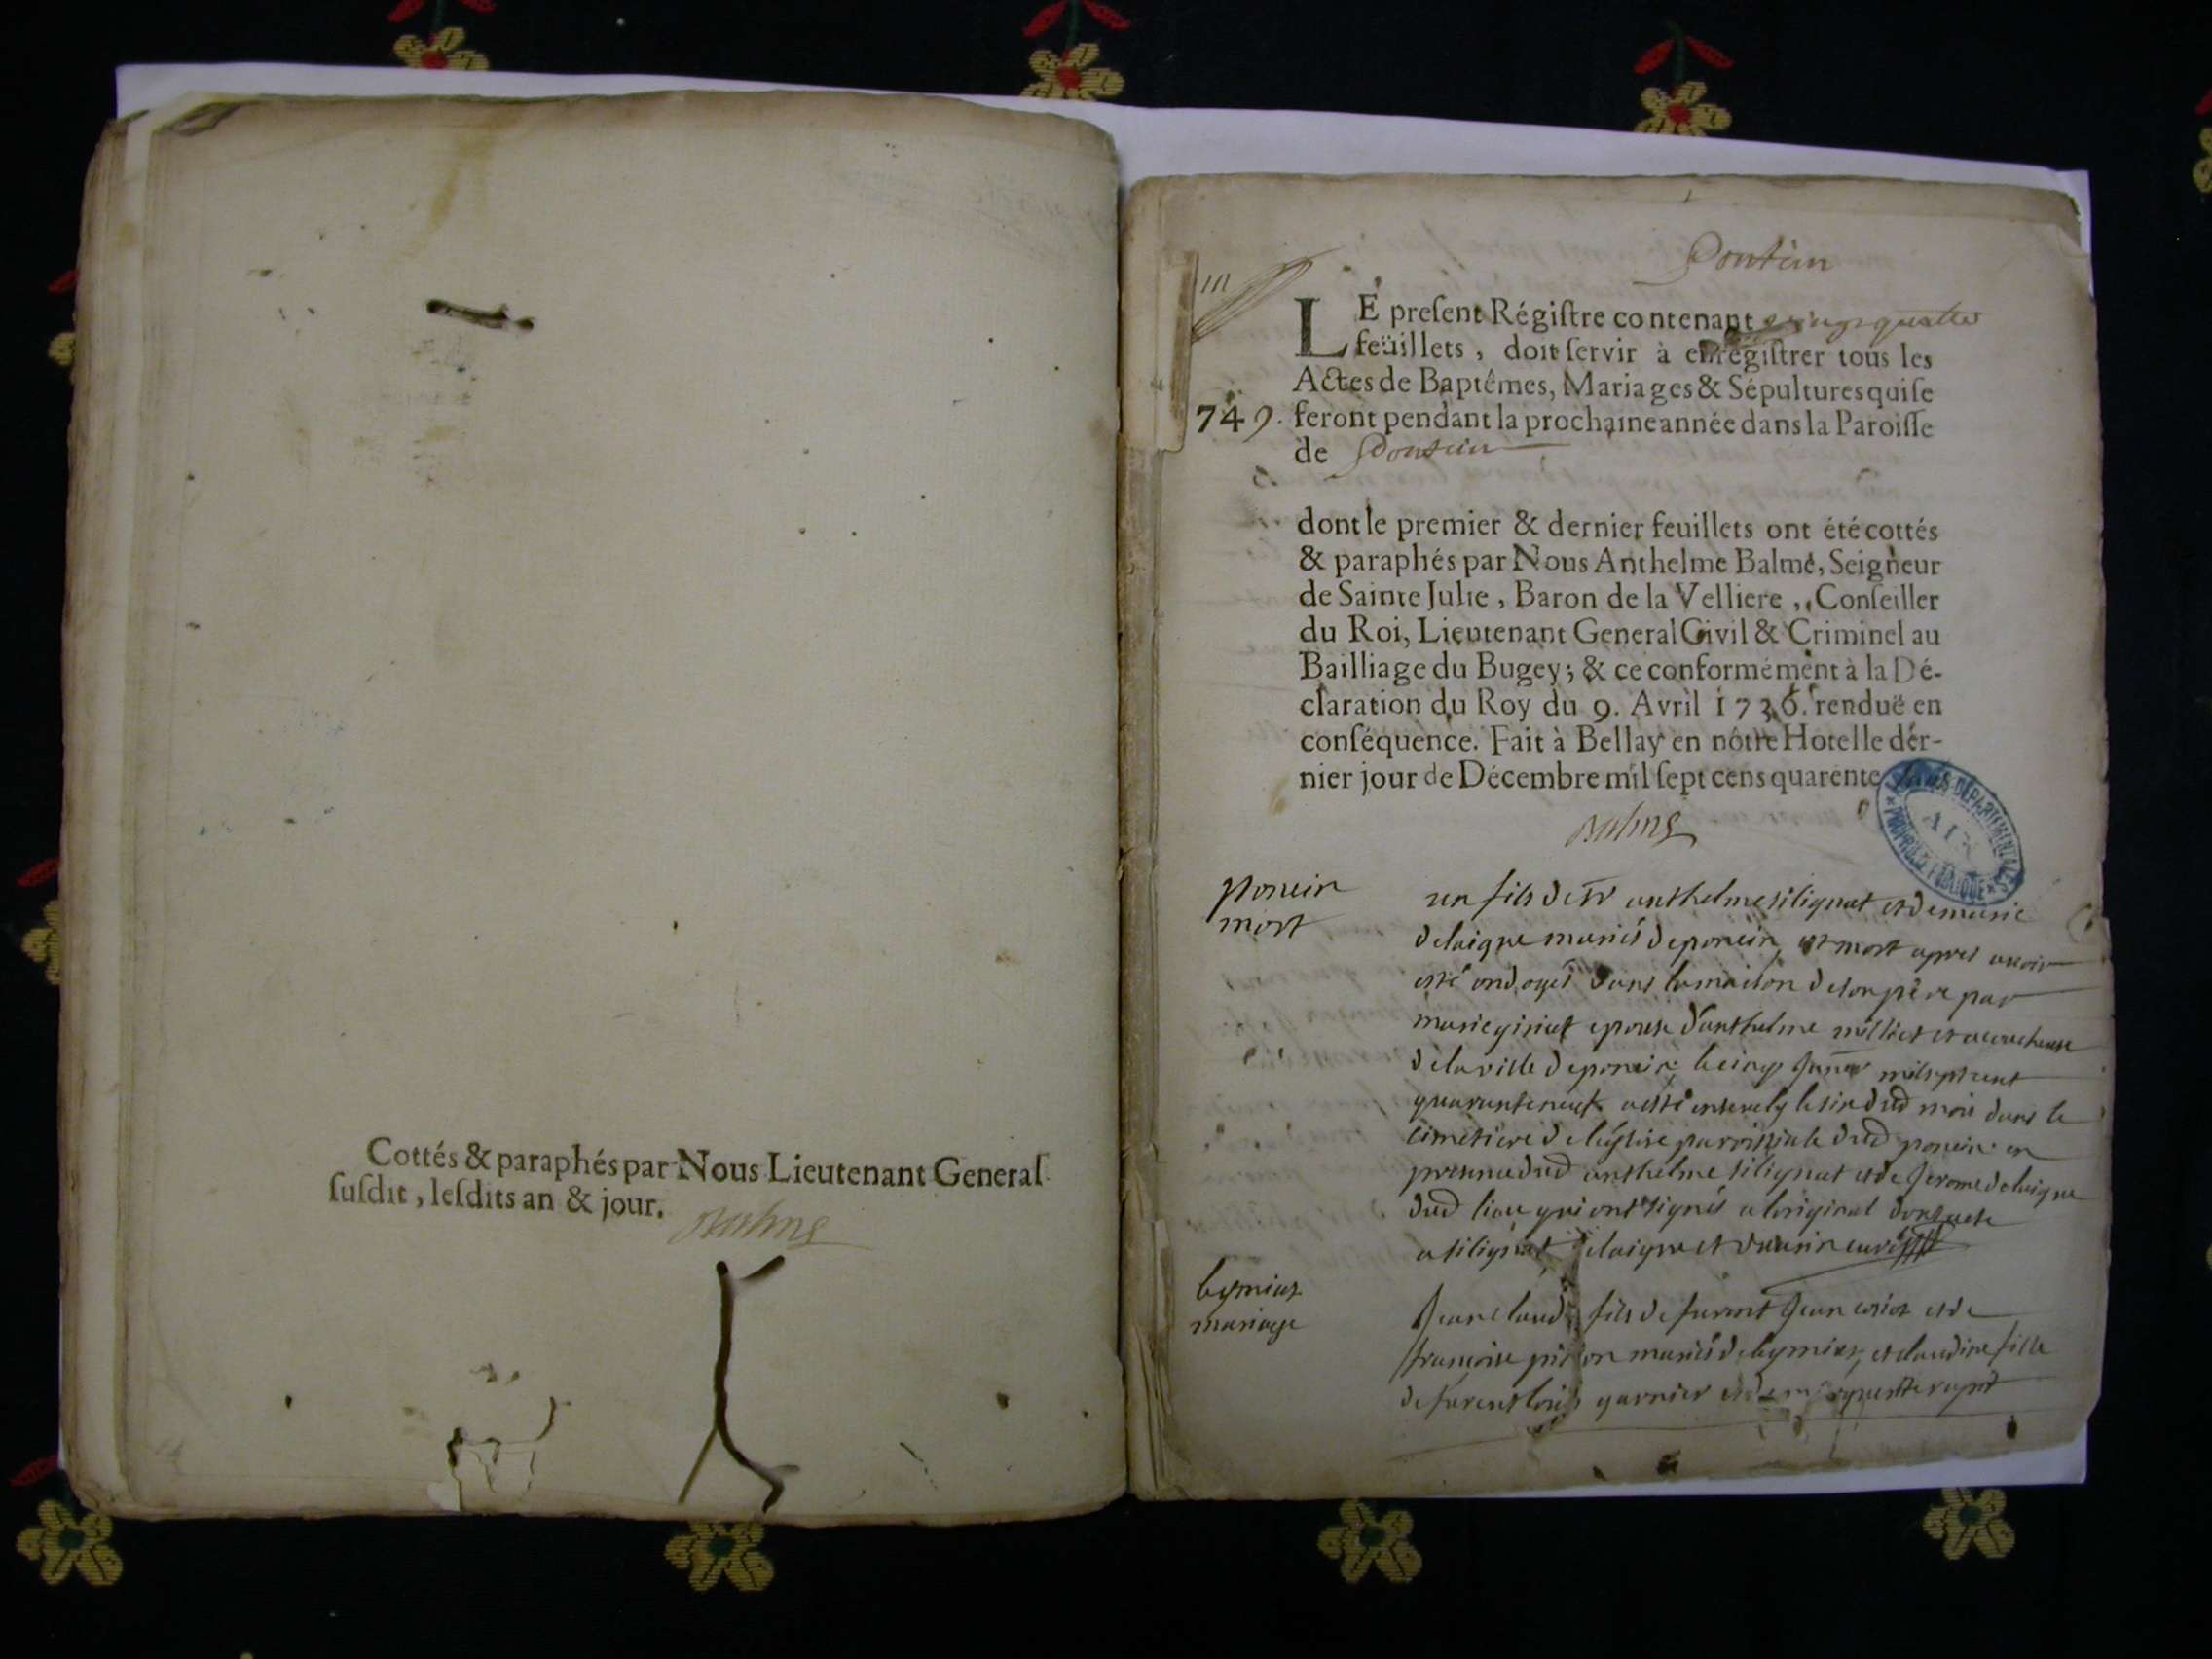 Cottés & paraphés par Nous Lieutenant General
ſuſdit, leſdits an & jour.
Balme
Poncin
LE preſent Régiſtre contenant vingt quatre
feüillets, doit ſervir à enregiſtrer tous les
Actes de Baptêmes, Mariages & Sépultures qui ſe
749. feront pendant la prochaine année dans la Paroiſſe
de Poncin
dont le premier & dernier feuillets ont été cottés
& paraphés par Nous Anthelme Balme, Seigneur
de Sainte Julie, Baron de la Velliere, Conſeiller
du Roi, Lieutenant General Civil & Criminel au
Bailliage du Bugey; & ce conformément à la Dé-
claration du Roy du 9. Avril 1736. renduë en
conſéquence. Fait à Bellay en nôtre Hotel le der-
nier jour de Décembre mil ſept cens quarente
Balme
ARCHIVES DÉPARTEMENTALES
AIN
PROPRIÉTÉ PUBLIQUE
poncin
mort
un fils de sr anthelme silignat et de marie
delaigue mariés de poncin, est mort apres avoir
esté ondoyé dans la maison de son père par
marie giriat epouse d'anthelme milliet et acoucheuse
de la ville de poncin le cinq janvr mil sept cent
quarante neuf a esté ensevely le six dud mois dans le
cimetiere de l'églsie parroissiale dud poncin en
presence dud anthelme silignat et de jerome delaigue
dud lieu qui ont signés a l'original dont acte
a silignat delaigue et curé
leymiat
mariage
jean claude fils de furent jean et de
francoise mariés de leymiat, et claudine fille
de furent louis garnier et